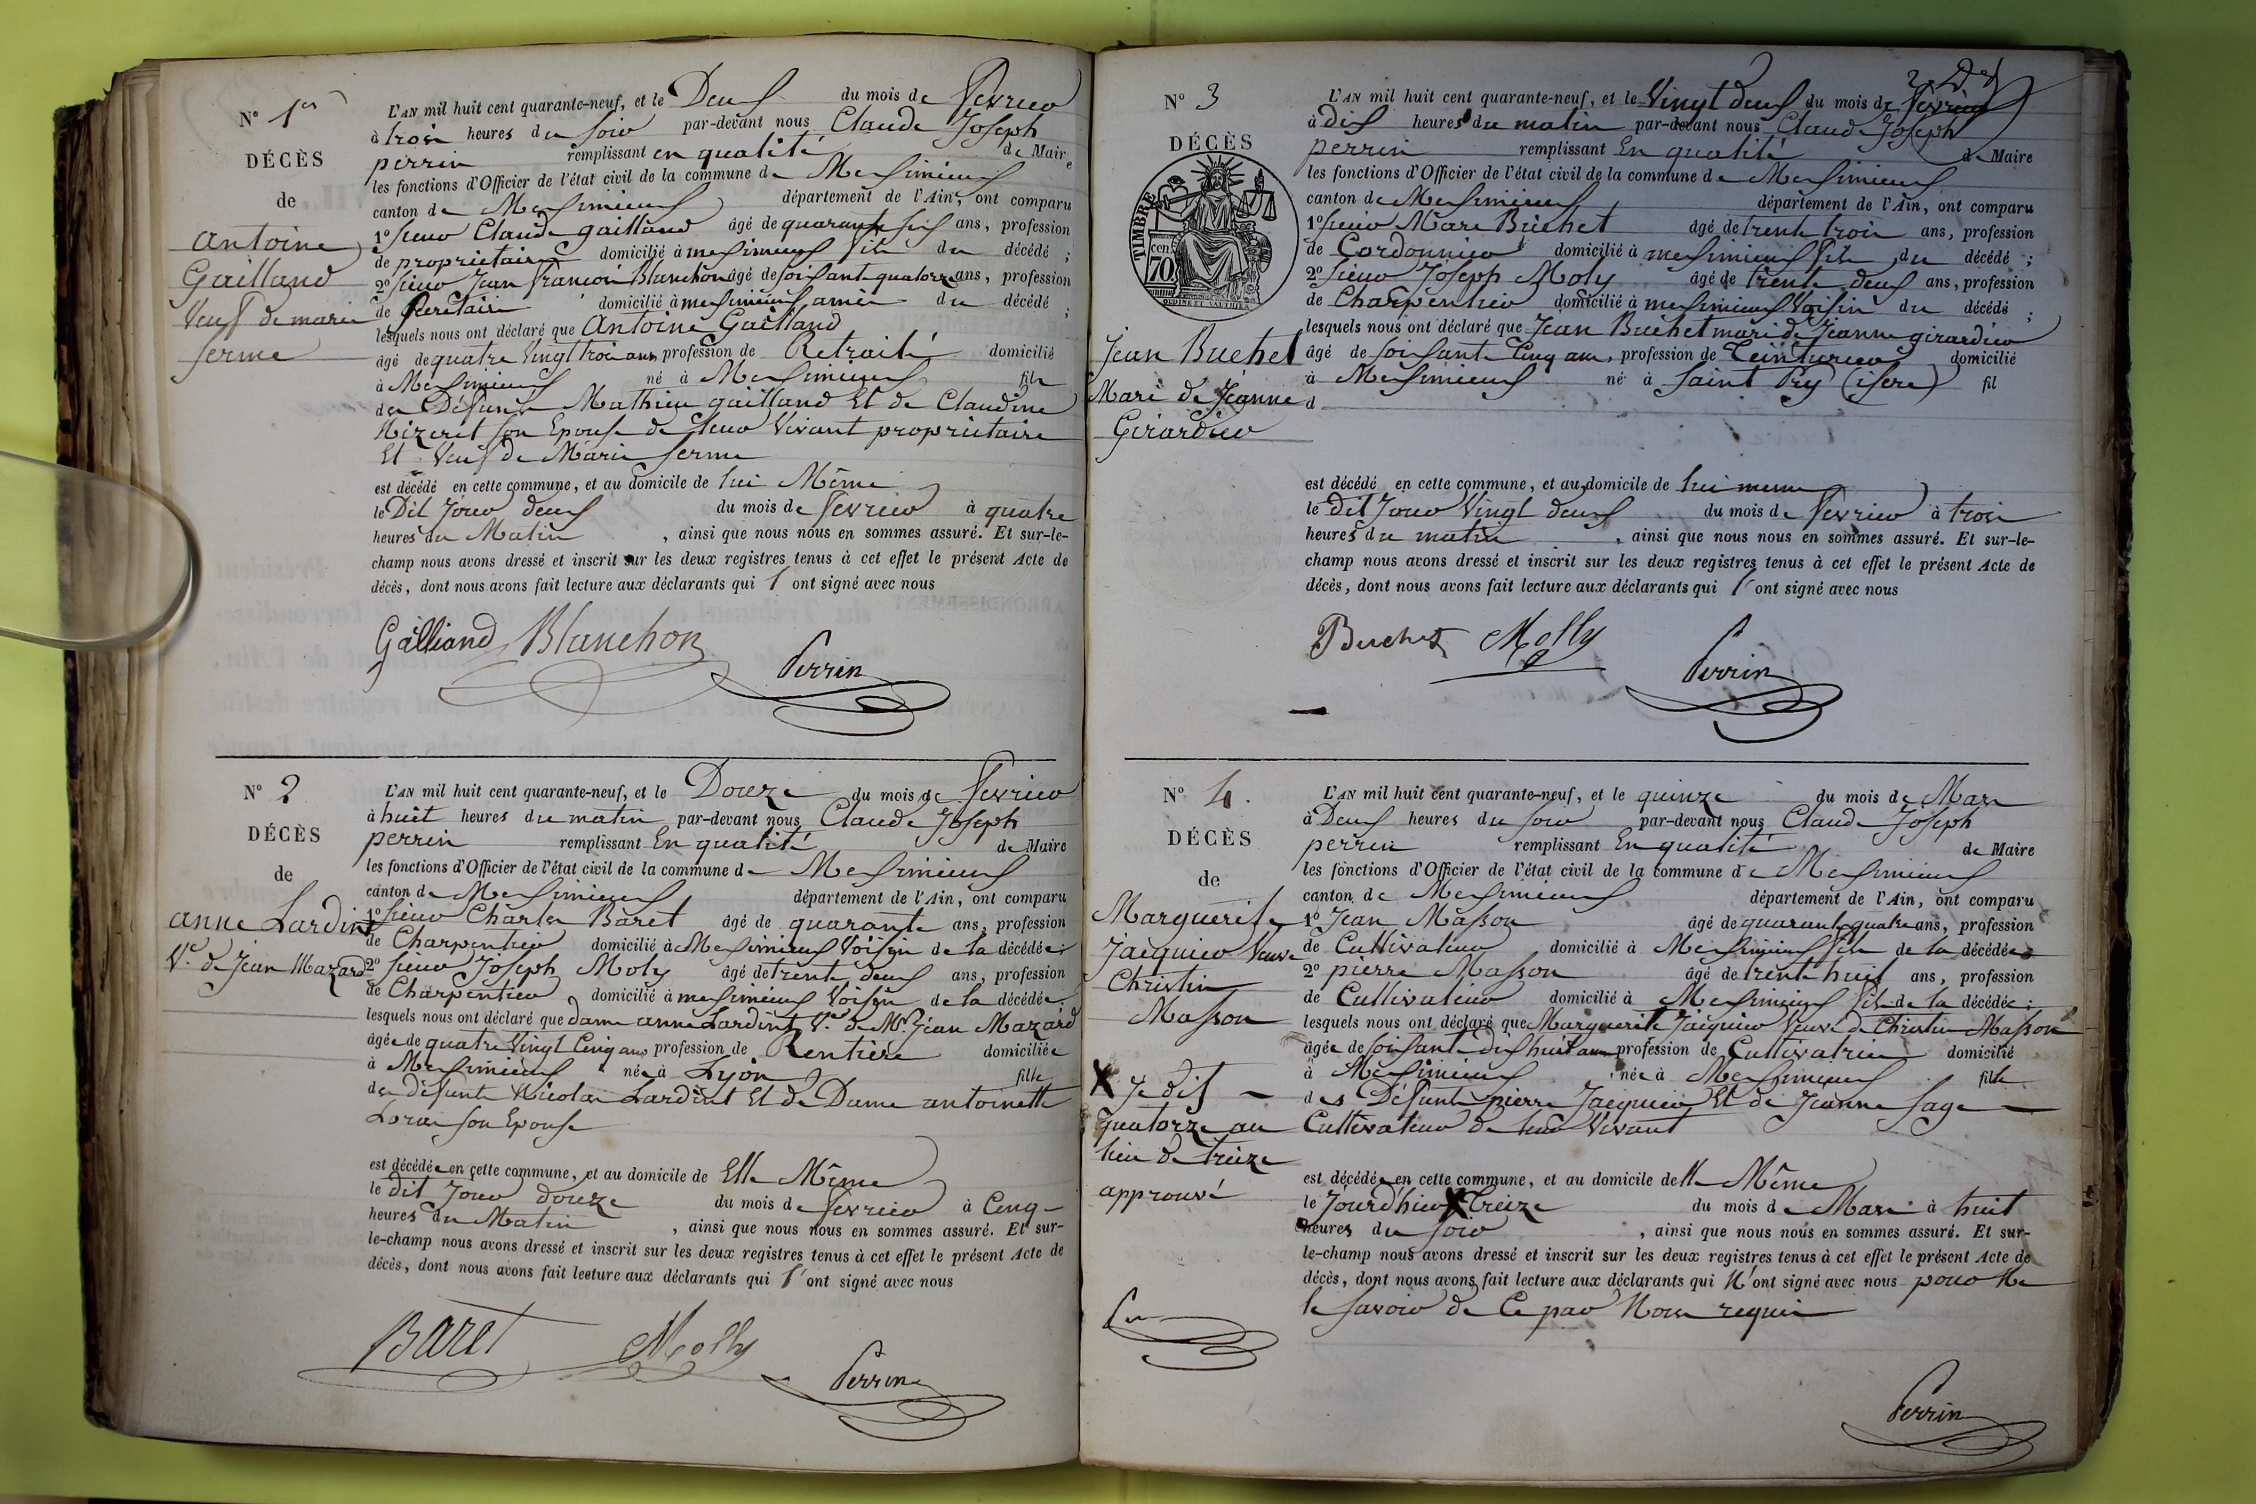 N° 1er
DÉCÈS
de
Antoine
Gailland
Veuf de marie
ferme
L'AN mil huit cent quarante-neuf, et le Deux du mois de Fevrier
à trois heures du soir par-devant nous Claude Joseph
perrin remplissant en qualité de Maire
les fonctions d'Officier de l'état civil de la commune de Messimieux
canton de Messimieux département de l'Ain, ont comparu
1° sieur Claude gailland âgé de quarante six ans, profession
de proprietaire domicilié à messimieux fils du décédé ;
2° sieur Jean françois Blanchon âgé de soixante quatorze ans, profession
de domicilié à messimieux amis du décédé ;
lesquels nous ont déclaré que Antoine Gailland
âgé de quatre Vingt trois ans profession de Retraité domicilié
à Messimieux né à Messimieux fils
des Défunts Mathieu gailland Et de Claudine
Nizeret son Epouse de leur Vivant proprietaire
Et Veuf de Marie ferme
est décédé en cette commune, et au domicile de lui Même
le Dit Jour deux du mois de Fevrier à quatre
heures du Matin , ainsi que nous nous en sommes assuré. Et sur-le-
champ nous avons dressé et inscrit sur les deux registres tenus à cet effet le présent Acte de
décès, dont nous avons fait lecture aux déclarants qui l' ont signé avec nous
Galliand Blanchon
Perrin
N° 2
DÉCÈS
de
anne Lardint
Ve. de Jean Mazard
L'AN mil huit cent quarante-neuf, et le Douze du mois de Fevrier
à huit heures du matin par-devant nous Claude Joseph
perrin remplissant En qualité de Maire
les fonctions d'Officier de l'état civil de la commune de Messimieux
canton de Messimieux département de l'Ain, ont comparu
1° sieur Charles Baret âgé de quarante ans, profession
de Charpentier domicilié à Messimieux Voisin de la décédée ;
2° sieur Joseph Moly âgé de trente deux ans, profession
de Charpentier domicilié à messimieux Voisin de la décédée ;
lesquels nous ont déclaré que dame anne Lardint Ve. de Mr. Jean Mazard
âgée de quatre Vingt Cinq ans profession de Rentière domiciliée
à Messimieux née à Lyon fille
des défunts Nicolas Lardint Et de Dame antoinette
Lorin son Epouse
est décédée en cette commune, et au domicile de Elle Même
le dit Jour douze du mois de fevrier à Cinq
heures du Matin , ainsi que nous nous en sommes assuré. Et sur-
le-champ nous avons dressé et inscrit sur les deux registres tenus à cet effet le présent Acte de
décès, dont nous avons fait lecture aux déclarants qui l' ont signé avec nous
Baret Molly
Perrin
N° 3
DÉCÈS
TIMBRE
70
Jean Buchet
Mari de Jeanne
Girardier
L'AN mil huit cent quarante-neuf, et le Vingt deux du mois de Fevrier
à dix heures du matin par-devant nous Claude Joseph
perrin remplissant En qualité de Maire
les fonctions d'Officier de l'état civil de la commune de Messimieux
canton de Messimieux département de l'Ain, ont comparu
1° sieur Marc Buchet âgé de trente trois ans, profession
de Cordonnier domicilié à messimieux fils du décédé ;
2° sieur Joseph Moly âgé de trente deux ans, profession
de Charpentier domicilié à messimieux Voisin du décédé ;
lesquels nous ont déclaré que Jean Buchet mari de Jeanne girardier
âgé de soixante Cinq ans, profession de Teinturier domicilié
à Messimieux né à saint Pry (isere) fil
d
est décédé en cette commune, et au domicile de lui meme
le Dit Jour Vingt deux du mois de Fevrier à trois
heures du matin , ainsi que nous nous en sommes assuré. Et sur-le-
champ nous avons dressé et inscrit sur les deux registres tenus à cet effet le présent Acte de
décès, dont nous avons fait lecture aux déclarants qui l' ont signé avec nous
Buchet Molly
Perrin
N° 4.
DÉCÈS
de
Marguerite
Jacquier Veuve
Christin
Masson
X Je dis
quatorze au
lieu de treize
approuvé
L'AN mil huit cent quarante-neuf, et le quinze du mois de Mars
à Deux heures du soir par-devant nous Claude Joseph
perrin remplissant En qualité de Maire
les fonctions d'Officier de l'état civil de la commune de Messimieux
canton de Messimieux département de l'Ain, ont comparu
1° Jean Masson âgé de quarante quatre ans, profession
de Cultivateur domicilié à Messimieux fils de la décédée
2° pierre Masson âgé de trente huit ans, profession
de Cultivateur domicilié à Messimieux fils de la décédée ;
lesquels nous ont déclaré que Marguerite Jacquier Veuve de Christin Masson
âgée de soixante dix huit ans profession de Cultivatrice domicilié
à Messimieux née à Messimieux fille
des Défunts pierre Jacquier Et de Jeanne sage
Cultivateur de leur Vivant
est décédée en cette commune, et au domicile delle Même
le Jourdhier X treize du mois de Mars à huit
heures du soir , ainsi que nous nous en sommes assuré. Et sur-
le-champ nous avons dressé et inscrit sur les deux registres tenus à cet effet le présent Acte de
décès, dont nous avons fait lecture aux déclarants qui N' ont signé avec nous pour Ne
le savoir de Ce par Nous requis
Perrin